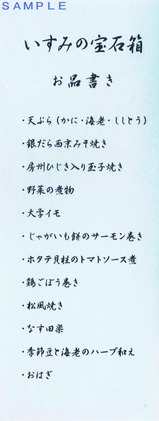 SAMPLE
いすみの宝石箱
お品書き
・天ぷら（かに・海老・ししとう）
・銀だら西京みそ焼き
・房州ひじき入り玉子焼き
・野菜の煮物
・大学イモ
・じゃがいも餅のサーモン巻き
・ホタテ貝柱のトマトソース煮
・鶏ごぼう巻き
・松風焼き
・なす田楽
・季節豆と海老のハーブ和え
・おはぎ